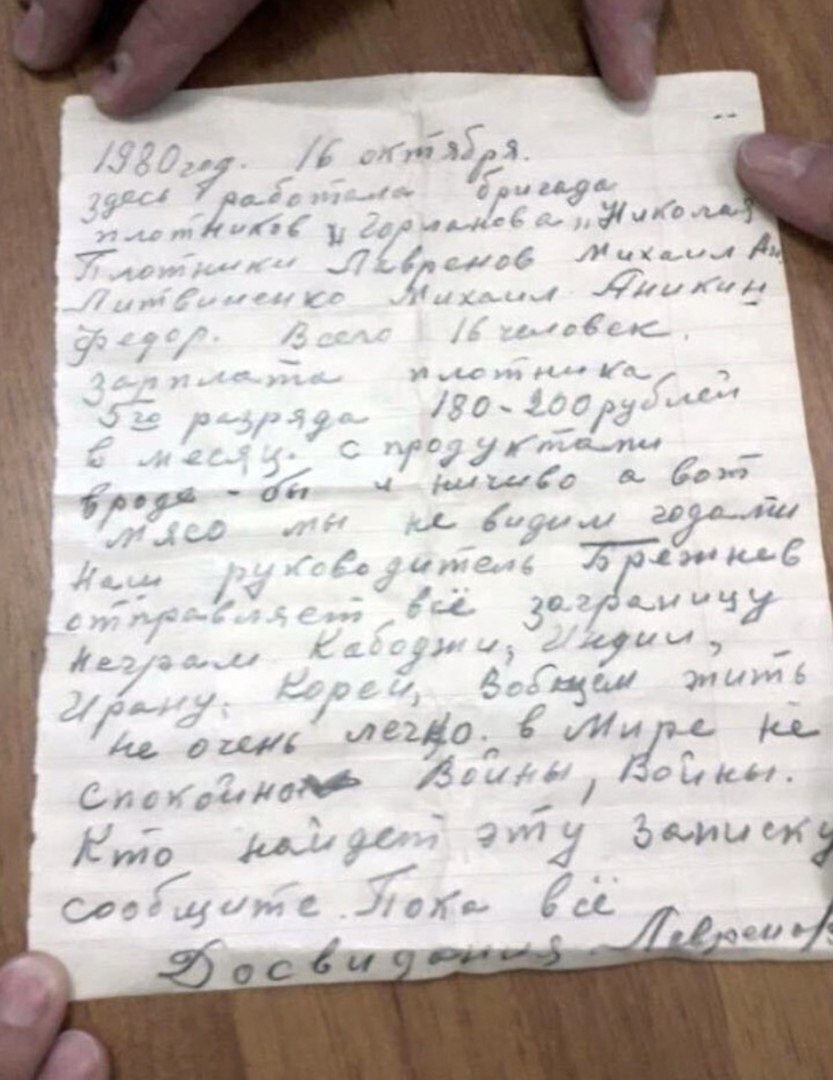 1980 год. 16 октября.
здесь работала бригада
плотников „Горланова„ Николая
Плотники Лавренов Михаил Ан.
Литвиненко Михаил Аникин
Федор. Всего 16 человек.
зарплата плотника
5го разряда 180-200 рублей
в месяц. с продуктами
вроде-бы и ничиво а вот
мясо мы не видим годами
наш руководитель Брежнев
отправляет всё заграницу
неграм Кабоджи, Индии,
Ирану, Кореи, Вобщем жить
не очень легко. в Мире не
спокойно Войны, Войны.
Кто найдет эту Записку
сообщите. Пока всё
Досвидания. Лавренов